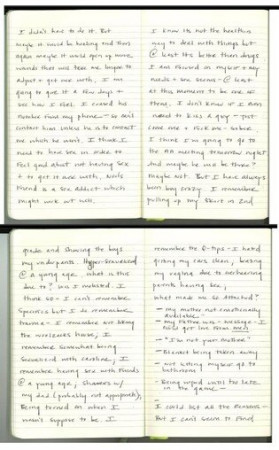 I didn't have to do it. But
maybe it would be healing and then
again maybe it would open up more
wounds that will take me longer to
adjust + get over with. I am
going to give it a few days +
see how I feel. I erased his
number from my phone - so can't
contact him unless he is to contact
me which he won't. I think I
need to have sex in order to
feel good about not having sex
+ to get it over with.
friend is a sex addict which
might work out well.
I know its not the healthiest
way to deal with things but
@ least its better than drugs
I am focused on myself + my
needs + sex seems @ least
at this moment to be one of
them. I don't know if I even
need to kiss a guy - just
I think I'm going to go to
the AA meeting tomorrow night
and maybe he will be there?
maybe not. But I have always
been boy crazy. I remember
pulling up my shirt in 2nd
grade and showing the boys
my underpants. Hyper-Sexualized
@ a young age. what is this
due to? was I molested. I
think so - I can't remember
specifics but I do remember
trauma. I remember
the house, I
remember somewhat being
I
remember having sex with friends
@ a young age, showers w/
my dad (probably not appropriate),
Being turned on when I
wasn't suppose to be. I
remember the Q-tips - I hated
my
vagina due to
parents having sex,
what made me so attached?
- my mother not emotionally
available -
- my father was -
love from men
- "I'm not your mother"
- Blanket being taken away
not letting myself go to
bathroom
- Being
in the game -
I could list all the reasons -
But I can't seem to find